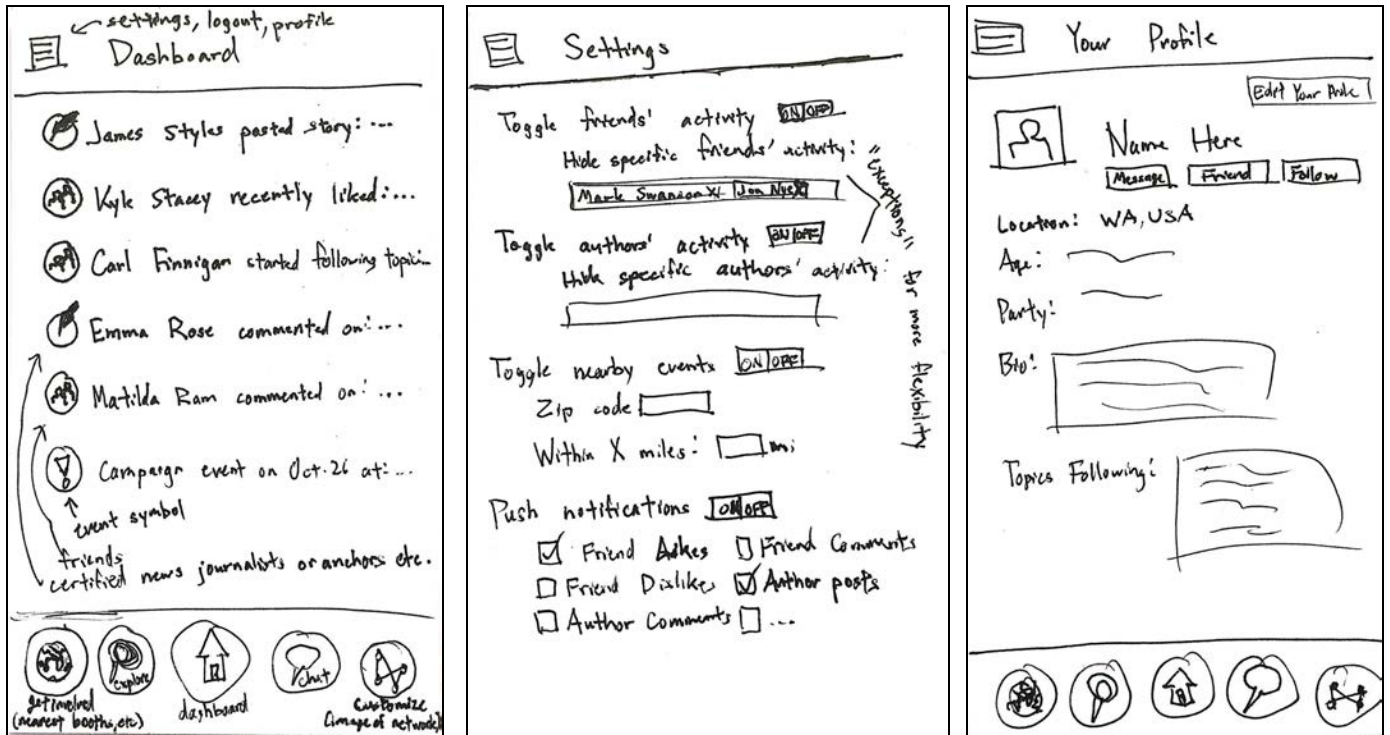 settings, logout, profile
Dashboard
James Styles posted story: ...
Kyle Stacey recently liked: ...
Carl Finnigan started following topic: ...
Emma Rose commented on: ...
Matilda Ram commented on: ...
Campaign event on Oct. 26 at: ...
event symbol
friends
certified news journalists or anchors etc.
explore
chat
get involved
(nearest booths, etc)
dashboard
customize
(image of network)
Settings
Toggle friends' activity ON OFF
Hide specific friends' activity:
Mark Swanson X Jon Nye X
Toggle authors' activity ON OFF
Hide specific authors' activity:
"exceptions" for more flexibility
Toggle nearby events ON OFF
Zip code
Within X miles: mi
Push notifications ON OFF
Friend Likes Friend Comments
Friend Dislikes Author posts
Author Comments ...
Your Profile
Edit Your
Name Here
Message Friend Follow
Location: WA, USA
Age:
Party:
Bio:
Topics Following: